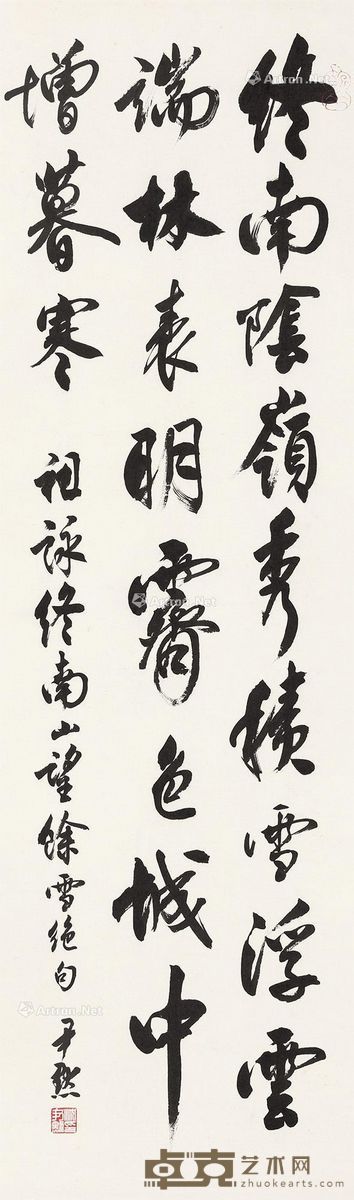 終南陰嶺秀積雪浮雲
端林表明霽色城中
增暮寒
祖詠終南山望餘雪絕句 尹默
Artron.Net
Artron.Net
Artron.Net
Artron.Net
卓克艺术网
www.zhuokearts.com